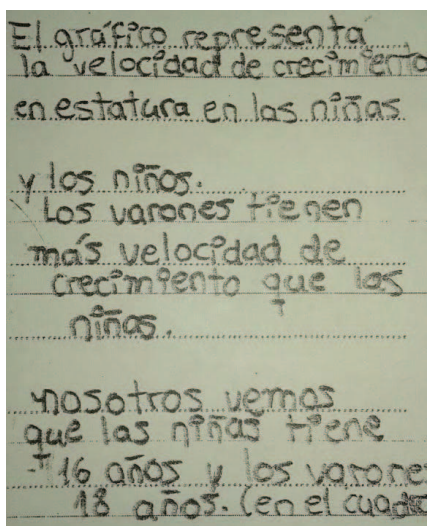 El gráfico representa
la velocidad de crecimiento
en estatura en las niñas
y los niños.
Los varones tienen
más velocidad de
crecimiento que las
niñas.
nosotros vemos
que las niñas tiene
16 años y los varones
18 años. (en el cuadro